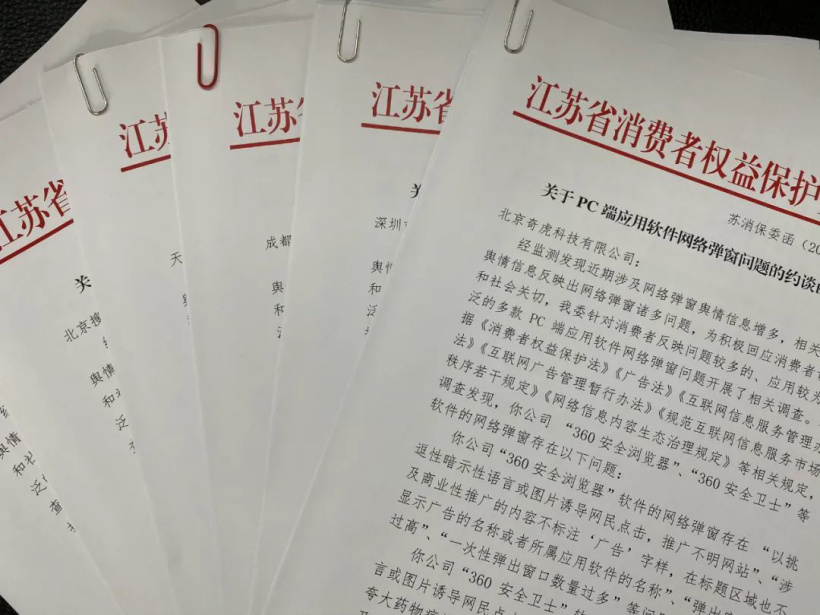 江苏省
关
北京搜
舆情
和社
泛
查
江苏
天
江苏
成都
舆
和
江苏省
关
深圳市
舆情
和
泛
江苏省消费者权益保护
苏消保委函(20
关于PC端应用软件网络弹窗问题的约谈函
北京奇虎科技有限公司:
经监测发现近期涉及网络弹窗舆情信息增多,相关
舆情信息反映出网络弹窗诸多问题,为积极回应消费者
和社会关切,我委针对消费者反映问题较多的、应用较为
泛的多款PC端应用软件网络弹窗问题开展了相关调查。
据《消费者权益保护法》《广告法》《互联网信息服务管理办
法》《互联网广告管理暂行办法》《规范互联网信息服务市场
秩序若干规定》《网络信息内容生态治理规定》等相关规定,
调查发现,你公司“360安全浏览器”、“360安全卫士”等
软件的网络弹窗存在以下问题:
你公司“360安全浏览器”软件的网络弹窗存在“以挑
逗性暗示性语言或图片诱导网民点击,推广不明网站”、“涉
及商业性推广的内容不标注‘广告’字样,在标题区域也不
显示广告的名称或者所属应用软件的名称”、“弹出
过高”、“一次性弹出窗口数量过多”等问
你公司“360安全卫士”软
言或图片诱导网民点
夸大药物